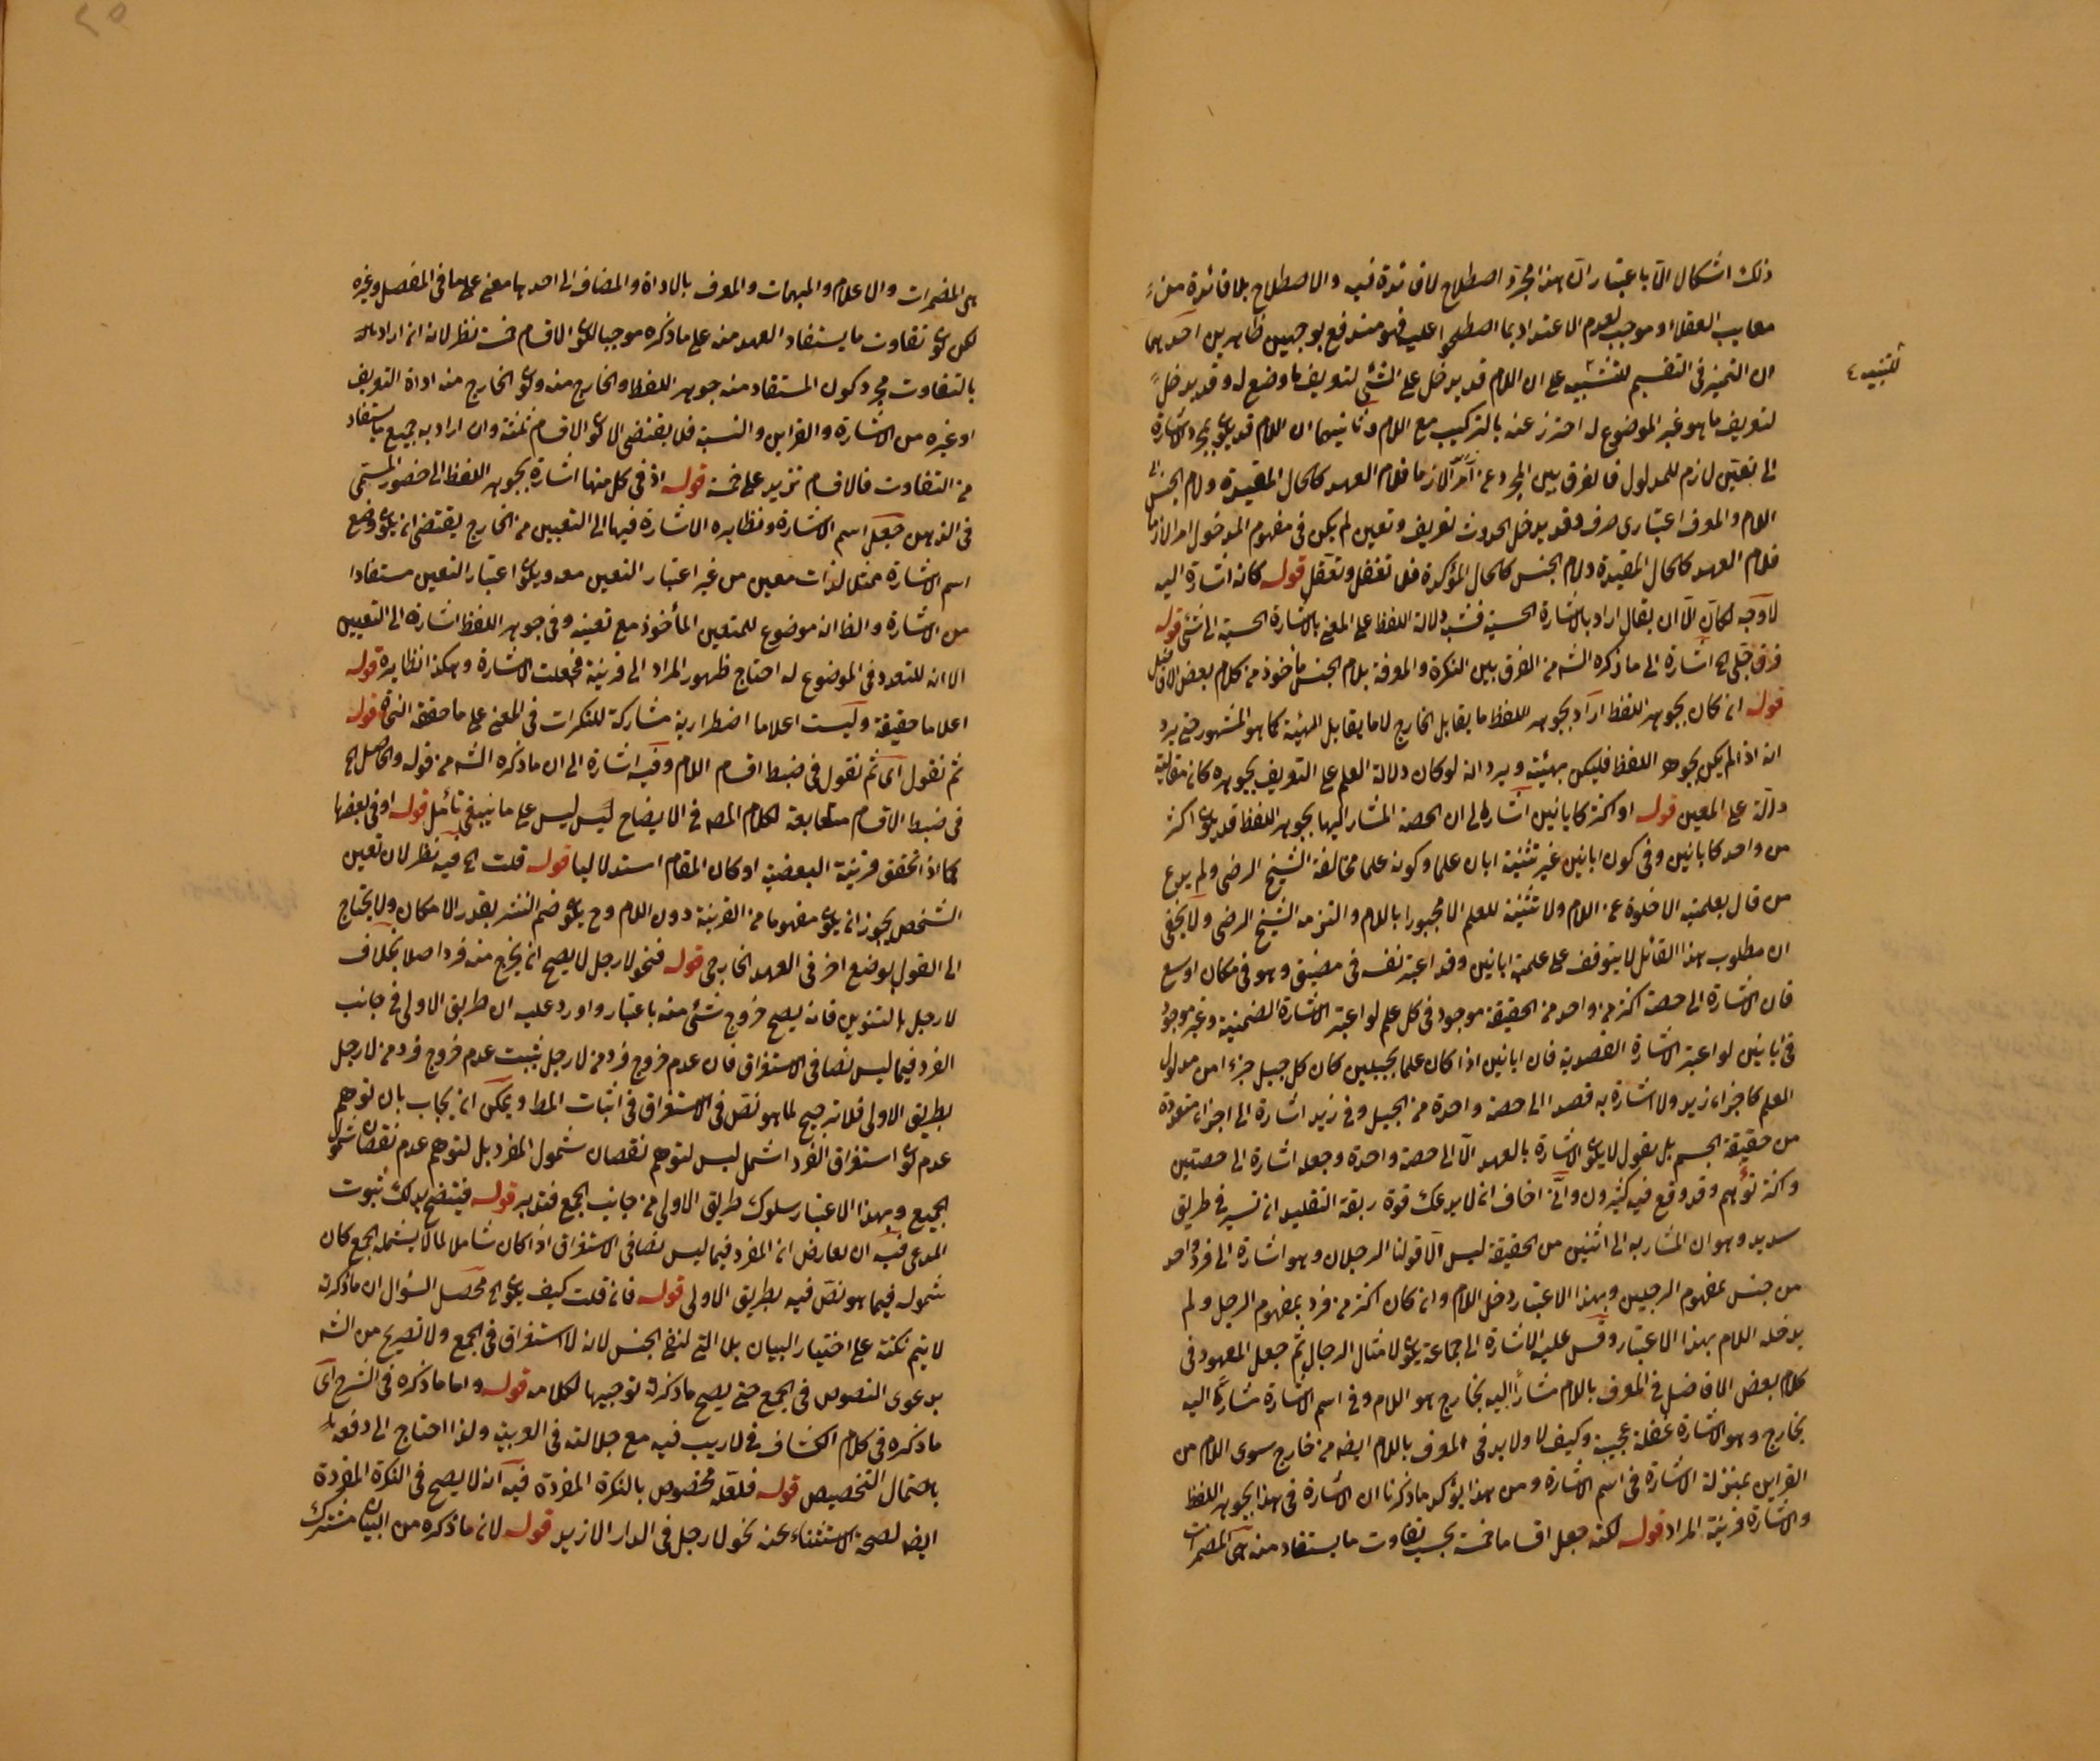 ذلك اشكال الا باعتبار ان هذا مجرد اصطلاح لا فائدة فيه والاصطلاح بلا فائدة من
معايب العقلاء وموجب لعدم الاعتداد بما اصطلحوا عليه فهو مندفع بوجهين ظاهرين احدهما
ان التميز فى التقسيم للتنبيه على ان اللام قد يدخل على الشئ لتعريف ما وضع له وقد يدخل
للتنبيه ٤
لتعريف ما هو غير الموضوع له احترز عنه بالتركيب مع اللام وثانيهما ان اللام قد يكون لمجرد الاشارة
الى تعين لازم للمدلول فالفرق بين المجرد عن اللام فلام العهد كالحال المقيدة ولام الجنس
اللام والمعرف اعتبارى صرف وقد يدخل لحدوث تعريف وتعين لم يكن فى مفهوم المدخول امرا لازما
فلام العهد كالحال المقيدة ولام الجنس كالحال المؤكدة فلا تغفل وتعقل قوله كانه اشارة اليه
لا وجه لكان الا ان يقال اراد بالاشارة الحسية فشبه دلالة اللفظ على المعنى بالاشارة الحسية الى شئ قوله
فرق جلى الخ اشارة الى ما ذكره الشه من الفرق بين النكرة والمعرفة بلام الجنس مأخوذ من كلام بعض الافاضل
قوله ان كان بجوهر اللفظ اراد بجوهر اللفظ ما يقابل الخارج لا ما يقابل الهيئة كما هو المشهور حتى يرد
انه اذا لم يكن بجوهر اللفظ فليكن بهيئته ويرد انه لو كان دلالة العلم على التعريف بجوهره كان مقابلته
دالة على المعين قوله او اكثر كابانين اشار الى ان الحصة المشار اليها بجوهر اللفظ قد يكون اكثر
من واحد كابانين وفى كون ابانين غير تثنية ابان علما وكونه علما مخالفة الشيخ الرضى ولم يدع
من قال بعلميته الا خلوه عن اللام ولا تثنية للعلم الا مجبورا باللام والتزمه الشيخ الرضى ولا يخفى
ان مطلوب هذا القائل لا يتوقف على علمية ابانين وقد اعتبر نفسه فى مضيق وهو فى مكان اوسع
فان الاشارة الى حصة اكثر من واحد من الحقيقة موجود فى كل علم لو اعتبر الاشارة الضمنية وغير موجود
فى ابانين لو اعتبر الاشارة القصدية فان ابانين اذا كان علما لجبلين كان كل جبل جزءا من مدلول
العلم كاجزاء زيد ولا اشارة به قصدا الى حصة واحدة من الجبل وفى زيد اشارة الى اجزاء متعددة
من حقيقة الجسم بل نقول لا يكون الاشارة بالعهد الا الى حصة واحدة وجعله اشارة الى حصتين
واكثر توهم وقد وقع فيه كثيرون وانى اخاف انه لا يدعك قوة ربقة التقليد ان تسير فى طريق
سديد وهو ان المشار به الى اثنين من الحقيقة ليس الا قولنا الرجلان وهو اشارة الى فرد واحد
من جنس لمفهوم الرجلين وبهذا الاعتبار دخل اللام وان كان اكثر من فرد لمفهوم الرجل ولم
يدخله اللام بهذا الاعتبار وقس عليه الاشارة الى جماعة يكون لامثال الرجال ثم جعل المعهود فى
كلام بعض الافاضل فى المعرف باللام مشارا اليه بخارج هو اللام وفى اسم الاشارة مشارا اليه
بخارج وهو الاشارة غفلة عجيبة وكيف لا ولا بد فى المعرف باللام ايضه من خارج سوى اللام من
القراين بمنزلة الاشارة فى اسم الاشارة ومن هذا يؤكد ما ذكرنا ان الاشارة فى هذا بجوهر اللفظ
والاشارة قرينة المراد قوله لكنه جعل اقساما خمسة بحسب تفاوت ما يستفاد منه هى المضمرات
هى المضمرات والاعلام والمبهمات والمعرف بالاداة والمضاف الى احدها معنى على ما فى المفصل وغيره
لكن كون تفاوت ما يستفاد العهد منه على ما ذكره موجبا لكون الاقسام خمسة نظر لانه ان اراد
بالتفاوت مجرد كون المستفاد منه جوهر اللفظ والخارج منه وكون الخارج منه اداة التعريف
او غيره من الاشارة والقراين والنسبة فلا يقتضى الا كون الاقسام ثلثة وان اراد به جميع ما يستفاد
من التفاوت فالاقسام تزيد على خمسة قوله اذ فى كل منها اشارة بجوهر اللفظ الى حضور المسمى
فى الذهن جعل اسم الاشارة ونظايره الاشارة فيها الى التعيين من الخارج يقتضى ان يكون وضع
اسم الاشارة مثلا لذات معين من غير اعتبار التعين معه ويكون اعتبار التعين مستفادا
من الاشارة والظ انه موضوع للمتعين المأخوذ مع تعينه وفى جوهر اللفظ اشارة الى التعيين
الا انه للتعدد فى الموضوع له احتاج ظهور المراد الى قرينة فجعلت الاشارة وهكذا نظايره قوله
اعلاما حقيقة وليست اعلاما اضطرارية مشاركة للنكرات فى المعنى على ما حققه النحاة قوله
ثم نقول اى ثم نقول فى ضبط اقسام اللام وفيه اشارة الى ان ما ذكره الشه من قوله والحاصل الخ
فى ضبط الاقسام متعابقة لكلام المصه فى الايضاح ليس ليس على ما ينبغى تأمل قوله او فى بعضها
كما اذا تحقق قرينة البعضية او كان المقام استدلاليا قوله قلت الخ فيه نظر لان تعين
الشخص يجوز ان يكون مفهوما من القرينة دون اللام وح يكون ضم النشر بقدر الامكان ولا يحتاج
الى القول بوضع اخر فى العهد الخارجى قوله فنحو لا رجل لا يصح ان يخرج منه فرد اصلا بخلاف
لا رجل بالتنوين فانه يصح خروج شئ منه باعتبار واورد عليه ان طريق الاولى فى جانب
الفرد فيما ليس نصا فى الاستغراق فان عدم خروج فرد من لا رجل يثبت عدم خروج فرد من لا رجل
بطريق الاولى فلا ترجيح لما هو نص فى الاستغراق فى اثبات المط ويمكن ان يجاب بان توهم
عدم كون استغراق الفرد اشمل ليس لتوهم نقصان شمول المفرد بل لتوهم عدم نقصان شمول
الجمع وبهذا الاعتبار سلوك طريق الاولى من جانب الجمع فتدبر قوله فيتضح بذلك ثبوت
المدعى فيه ان يعارض ان المفرد فيما ليس نصا فى الاستغراق اذا كان شاملا لما لا يشمله الجمع كان
شموله فيما هو نص فيه بطريق الاولى قوله فان قلت كيف يكون الخ محصل السؤال ان ما ذكرته
لا يتم نكتة على اختيار البيان بلا التى لنفى الجنس لانه لا استغراق فى الجمع ولا تصريح من الشه
بدعوى النصوص فى الجمع حتى يصح ما ذكرته توجيها لكلامه قوله واما ما ذكره فى الشرح اى
ما ذكره فى كلام الكشاف فى لا ريب فيه مع جلالته فى العربية ولذا احتاج الى دفعه
باحتمال التخصيص قوله فلعله مخصوص بالنكرة المفردة فيه انه لا يصح فى النكرة المفردة
ايضه لصحة الاستثناء عنه نحو لا رجل فى الدار الا زيد قوله لان ما ذكره من البيان مشترك